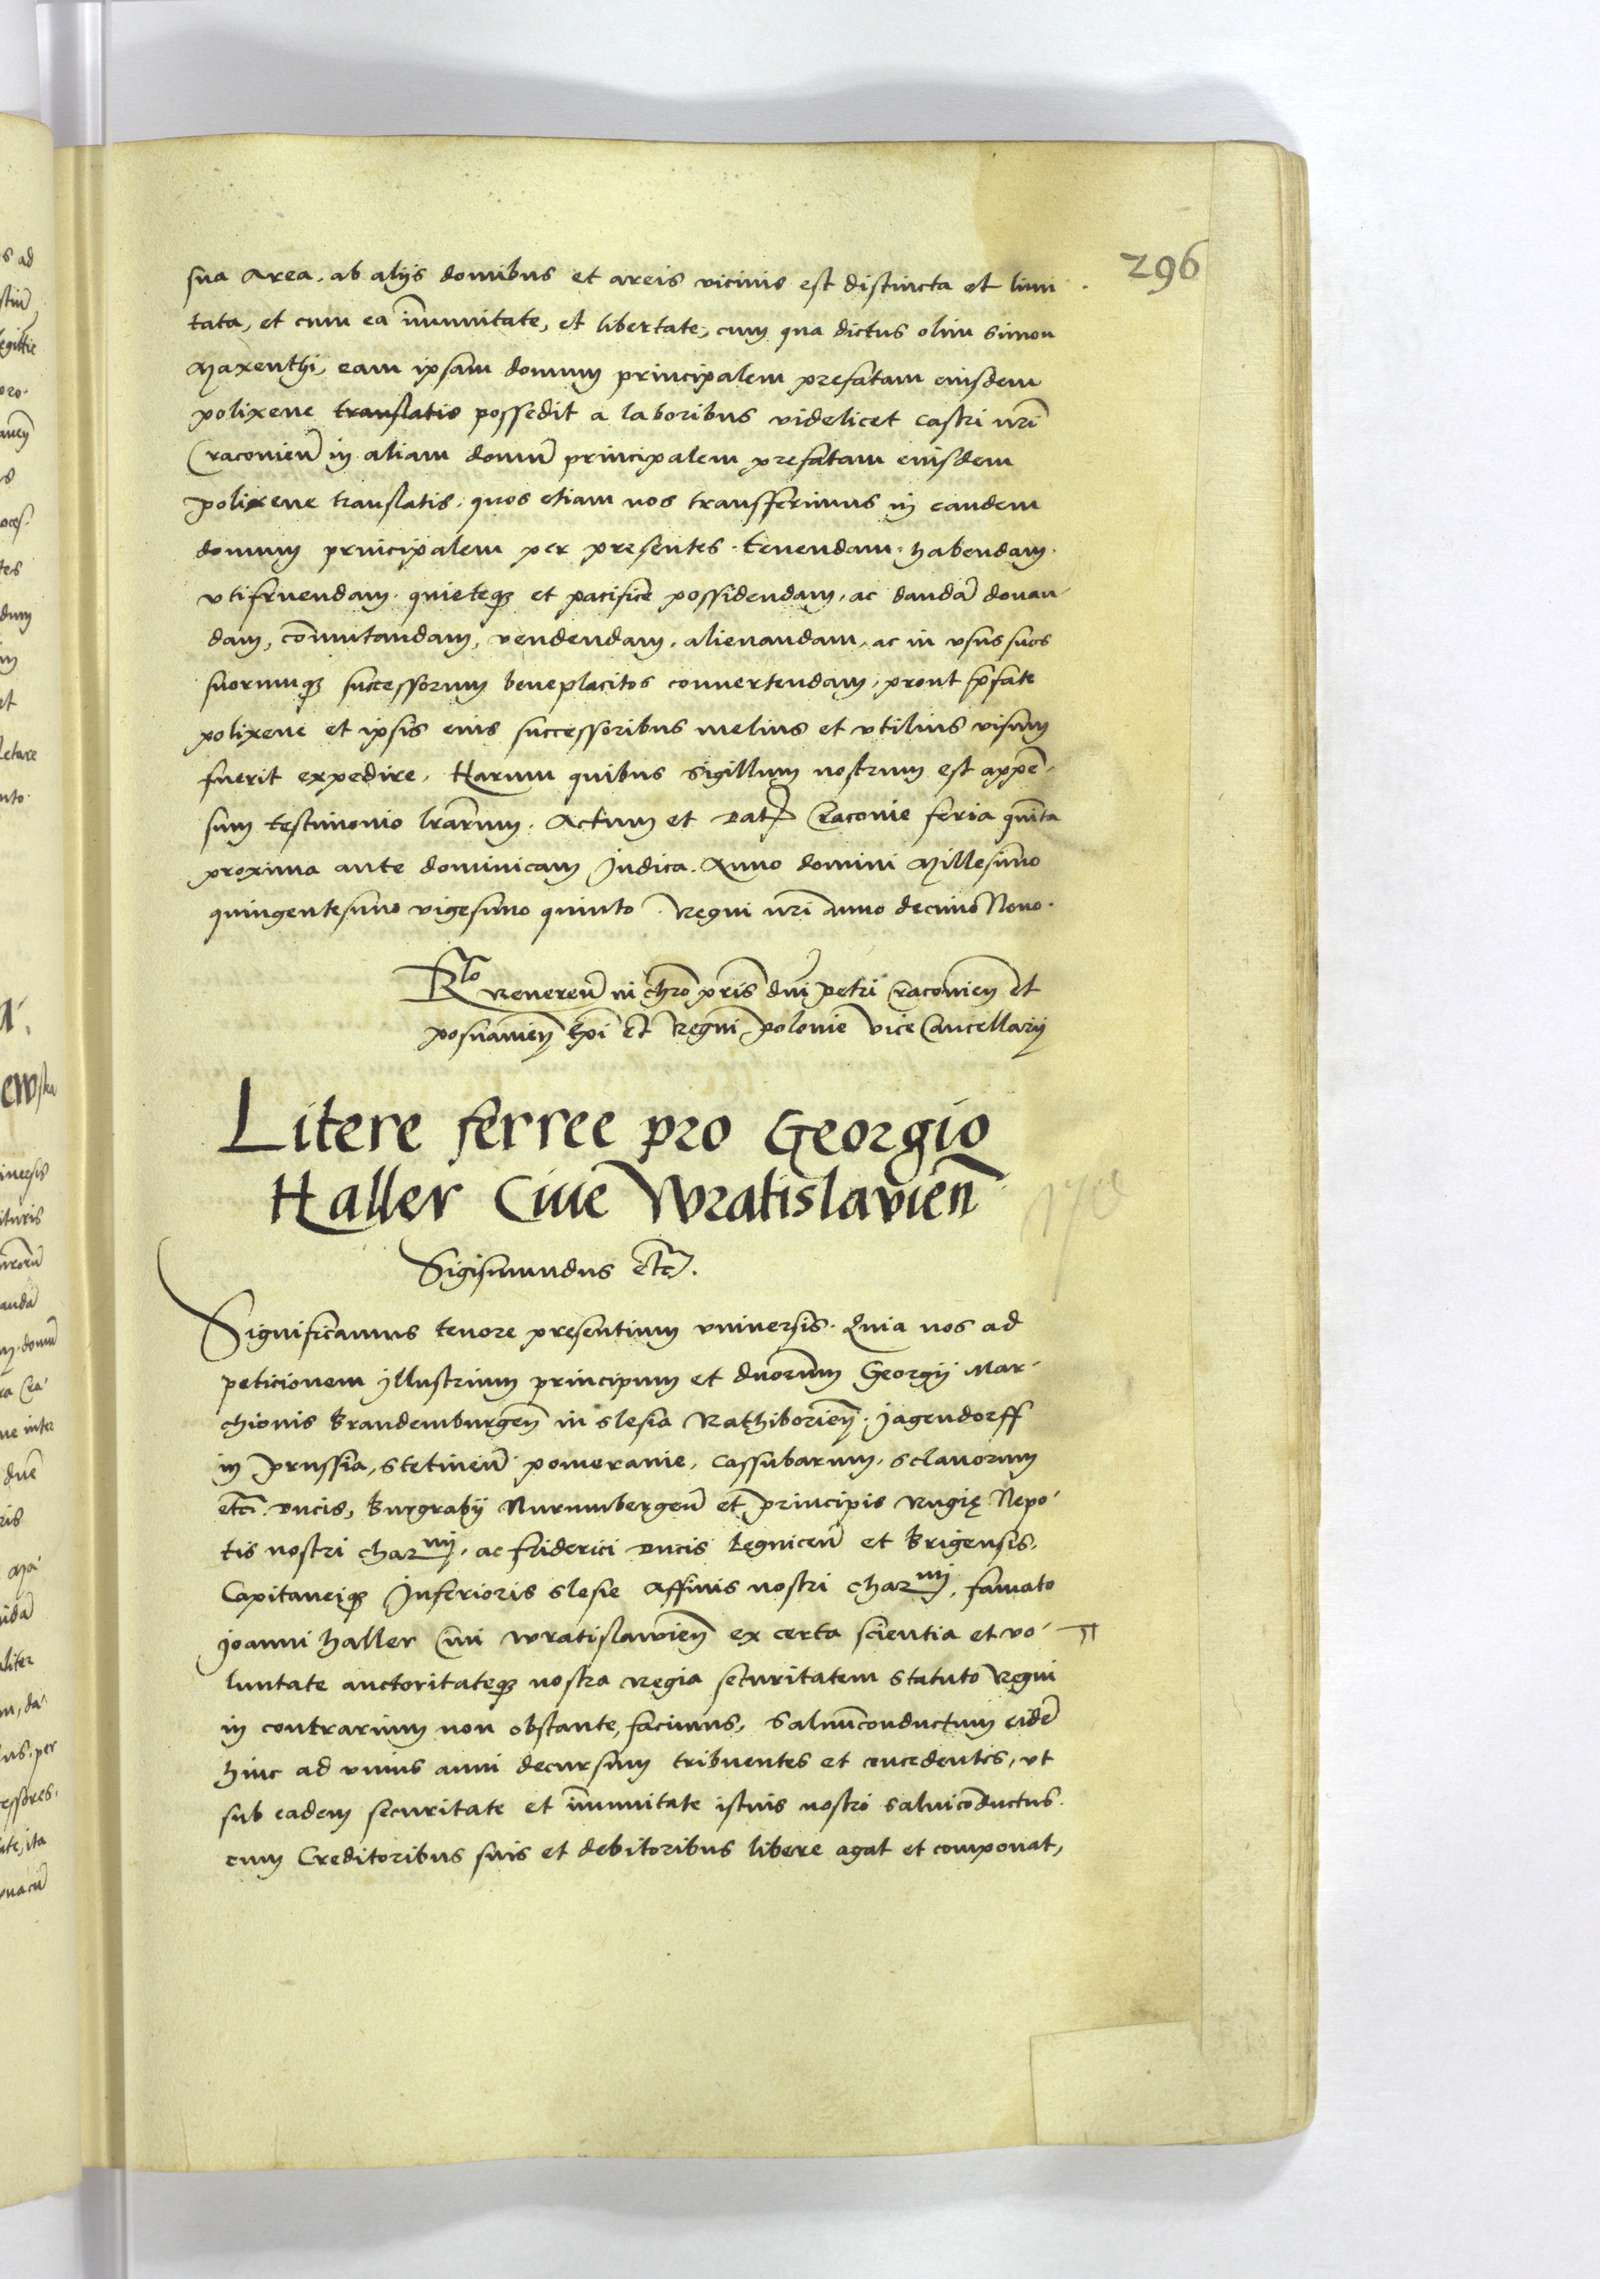 296
sua Area. ab alijs domibus et areis vicinis est distincta et limi
tata, et cum ea im̄unitate, et libertate, cum qua dictus olim Simon
Maxenthi, eam ipsam domum principalem prefatam eiusdem
polixene translatis possedit a laboribus videlicet castri nr̄i
Cracovien̄ in aliam domū principalem prefatam eiusdem
polixene translatis. quos etiam nos transferimus in eandem
domum principalem per presentes. tenendam. habendam.
vtifruendam. quieteqȝ et pacifice possidendam, ac dandā donan-
dam, com̄utandam, vendendam. alienandam, ac in vsus suos
suorumqȝ successorum beneplacitos convertendam, prout p̄fate
polixene et ipsis eius successoribus melius et vtilius visum
fuerit expedire. Harum quibus Sigillum nostrum est appen-
sum testimonio lr̄arum. Actum et Dat Cracovie feria quīta
proxima ante dominicam Judica. Anno domini Millesimo
quingentesimo vigesimo quinto. Regni nr̄i anno decimo Nono.
Rlo Reveren̄ in chro pr̄is dn̄i Petri Cracovien̄ et
posnanien̄ Ep̄i et Regni polonie vice Cancellarij
Litere ferree pro Georgio
Haller Cive Wratislavien̄
Sigismundus etc̄.
Significamus tenore presentium vniversis. Quia nos ad
peticionem illustrium principum et dn̄orum Georgij Mar-
chionis Brandemburgen̄ in Slesia Rathiborien̄. Jagendorff
in Prussia, Stetinen̄ pomeranie, Cassubarum, Sclavorum
etc̄. Ducis, Burgrabij Nurumbergen̄ et principis Rugię Nepo-
tis nostri charmi, ac friderici Ducis Legnicen̄ et Brigensis,
Capitaneiqȝ Inferioris Slesie Affinis nostri charmi, famato
Joanni Haller Civi wratislavien̄ ex certa scientia et vo-
luntate auctoritateqȝ nostra regia securitatem statuto Regni
in contrarium non obstante, facimus, Salvūconductum eidē
hinc ad vnius anni decursum tribuentes et concedentes, vt
sub eadem securitate et im̄unitate istius nostri salviconductus
cum Creditoribus suis et debitoribus libere agat et componat,